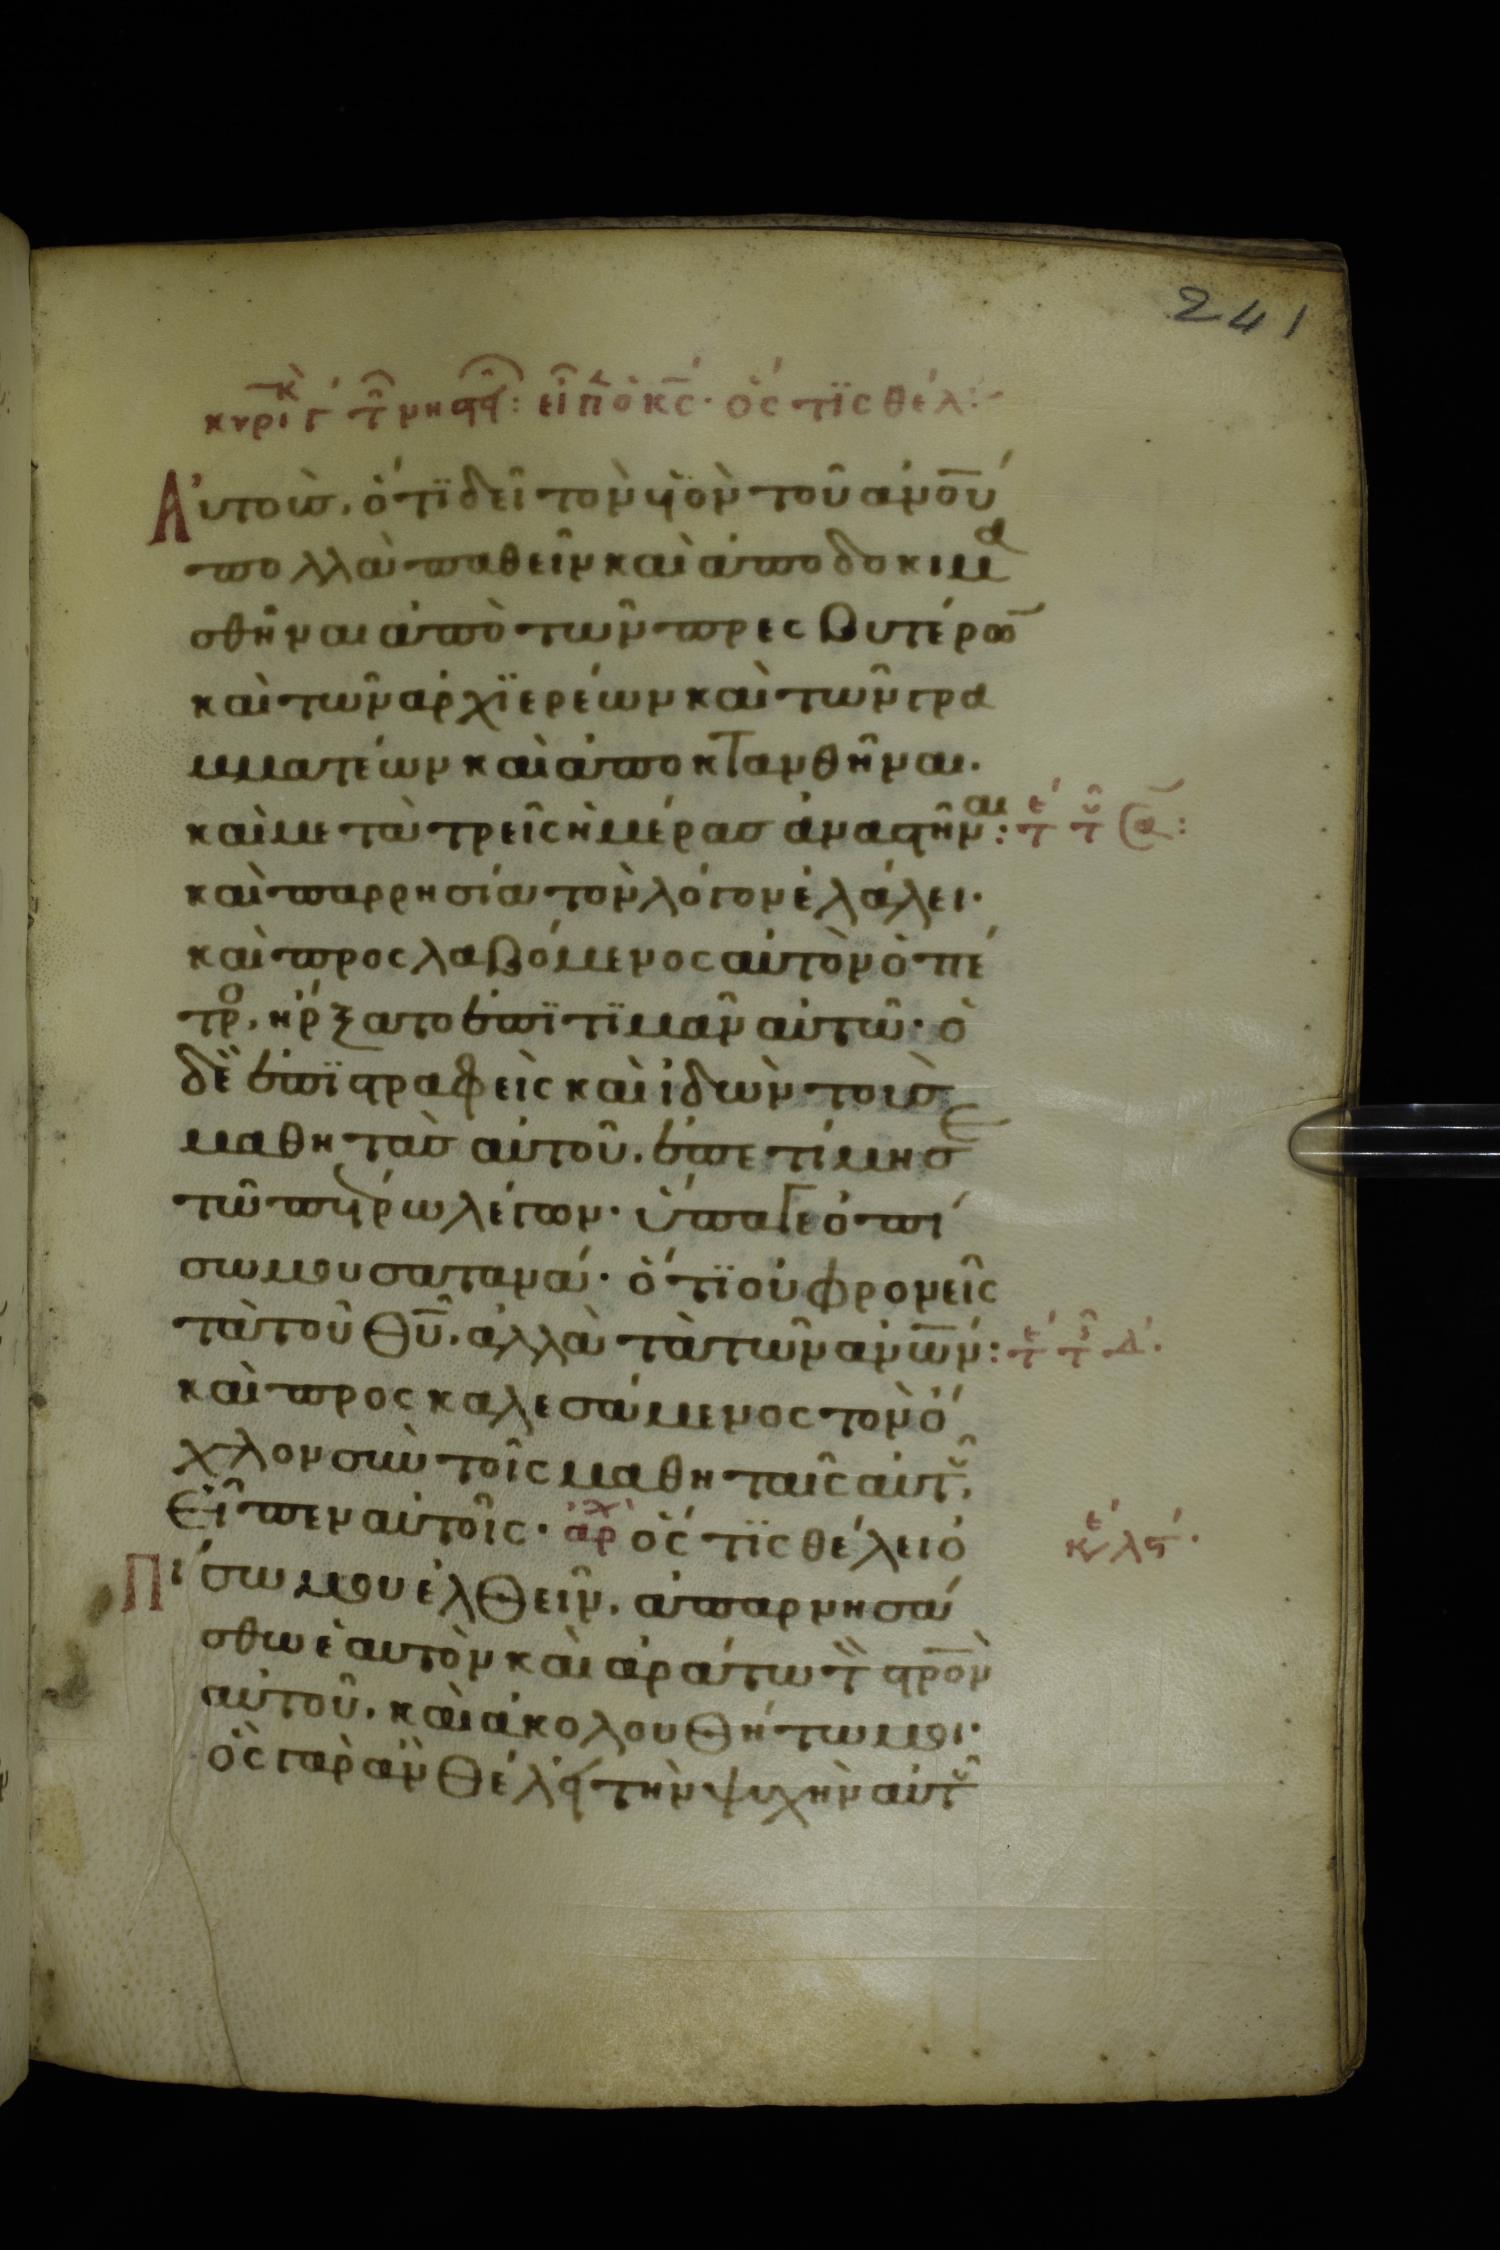 241
κυριακ γ τῶν νηστ: εἶπεν ὁ κς· ὅς τϊς θέλ:
Αὐτοὺσ, ὅτϊ δεῖ τὸν ϋϊὸν τοῦ ἀνου
πολλὰ παθεῖν καὶ ἀποδοκιμα
σθῆναι ἀπὸ τῶν πρεσβυτέρων
καὶ τῶν ἀρχϊερέων καὶ τῶν γρα
μματέων καὶ ἀποκτανθῆναι.
καὶ μετὰ τρεῖς ἡμέρασ ἀναστῆναι:
καὶ παρρησία τὸν λόγον ἐλάλει.
καὶ προςλαβόμενος αὐτὸν ὁ πέ
τρο, ἤρξατο ἐπϊτϊμᾶν αὐτῶ· ὁ
δὲ ἐπϊστραφεὶς καὶ ἰδὼν τοὺσ
μαθητὰσ αὐτοῦ, ἐπετίμησε
τῶ πέτρω λέγων· ὕπαγε ὀπί
σω μου σατανά· ὅτϊ οὐ φρονεῖς
τὰ τοῦ θυ, ἀλλὰ τὰ τῶν ἀνων:
καὶ προςκαλεσάμενος τὸν ὄ
χλον σὺν τοῖς μαθηταῖς αὐτοῦ,
Εἶπεν αὐτοῖς· ἀρχ ὅς τϊς θέλει ὀ
Πίσω μου ἐλθεῖν, ἀπαρνησά
σθω ἑαυτὸν καὶ ἀράτω τὸν στρον
αὐτοῦ, καὶ ἀκολουθήτω μοι.
ὃς γὰρ ἂν θέλη τὴν ψυχὴν αὐτοῦ